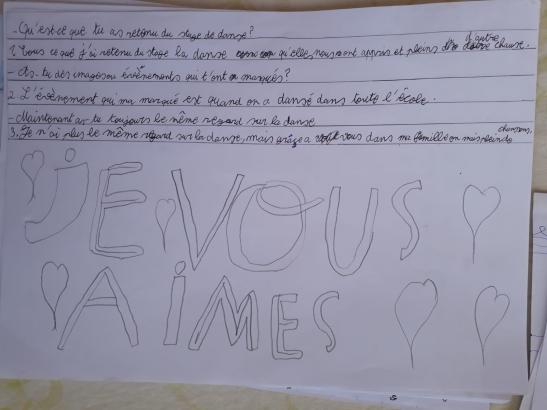 - Qu'est-ce que tu as retenu du stage de danse?
1. Tous ce que j'ai retenu du stage la danse qu'elle nous ont appris et pleins d'autre chause.
- As-tu des images ou évènements qui t'ont marqués?
2. L'évènement qui ma marqué est quand on a dansé dans toute l'école.
- Maintenant as-tu toujours le même regard sur la danse
3. Je n'ai plus le même regard sur la danse, mais grâçe a vous dans ma famille on mais plein de chansons,
JE VOUS
AIMES